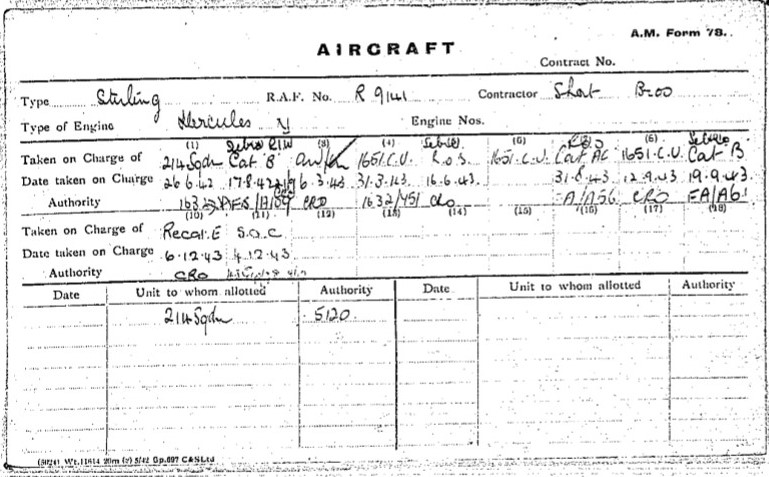 A.M. Form 78.
AIRCRAFT
Contract No.
Type Stirling R.A.F. No. R 9141 Contractor Short
Type of Engine Hercules Engine Nos.
(1) (3) (4) (6) (6)
Taken on Charge of 214 Sqdn Cat B 1651.C.U. R.O.S. 1651.C.U. Cat AC 1651.C.U. Cat B
Date taken on Charge 26.6.42 17.8.42 6.3.43 31.3.43 16.6.43 31.8.43 12.9.43 19.9.43
Authority CRO 1632/451 CRO A/A56 CRO EA/A61
(10) (11) (12) (13) (14) (15) (16) (17) (18)
Taken on Charge of Recat.E S.O.C
Date taken on Charge 6.12.43 4.12.43
Authority CRO
Date Unit to whom allotted Authority Date Unit to whom allotted Authority
214 Sqdn 5120
Wt.11614 20m 5/42 Gp.697 C&S Ltd